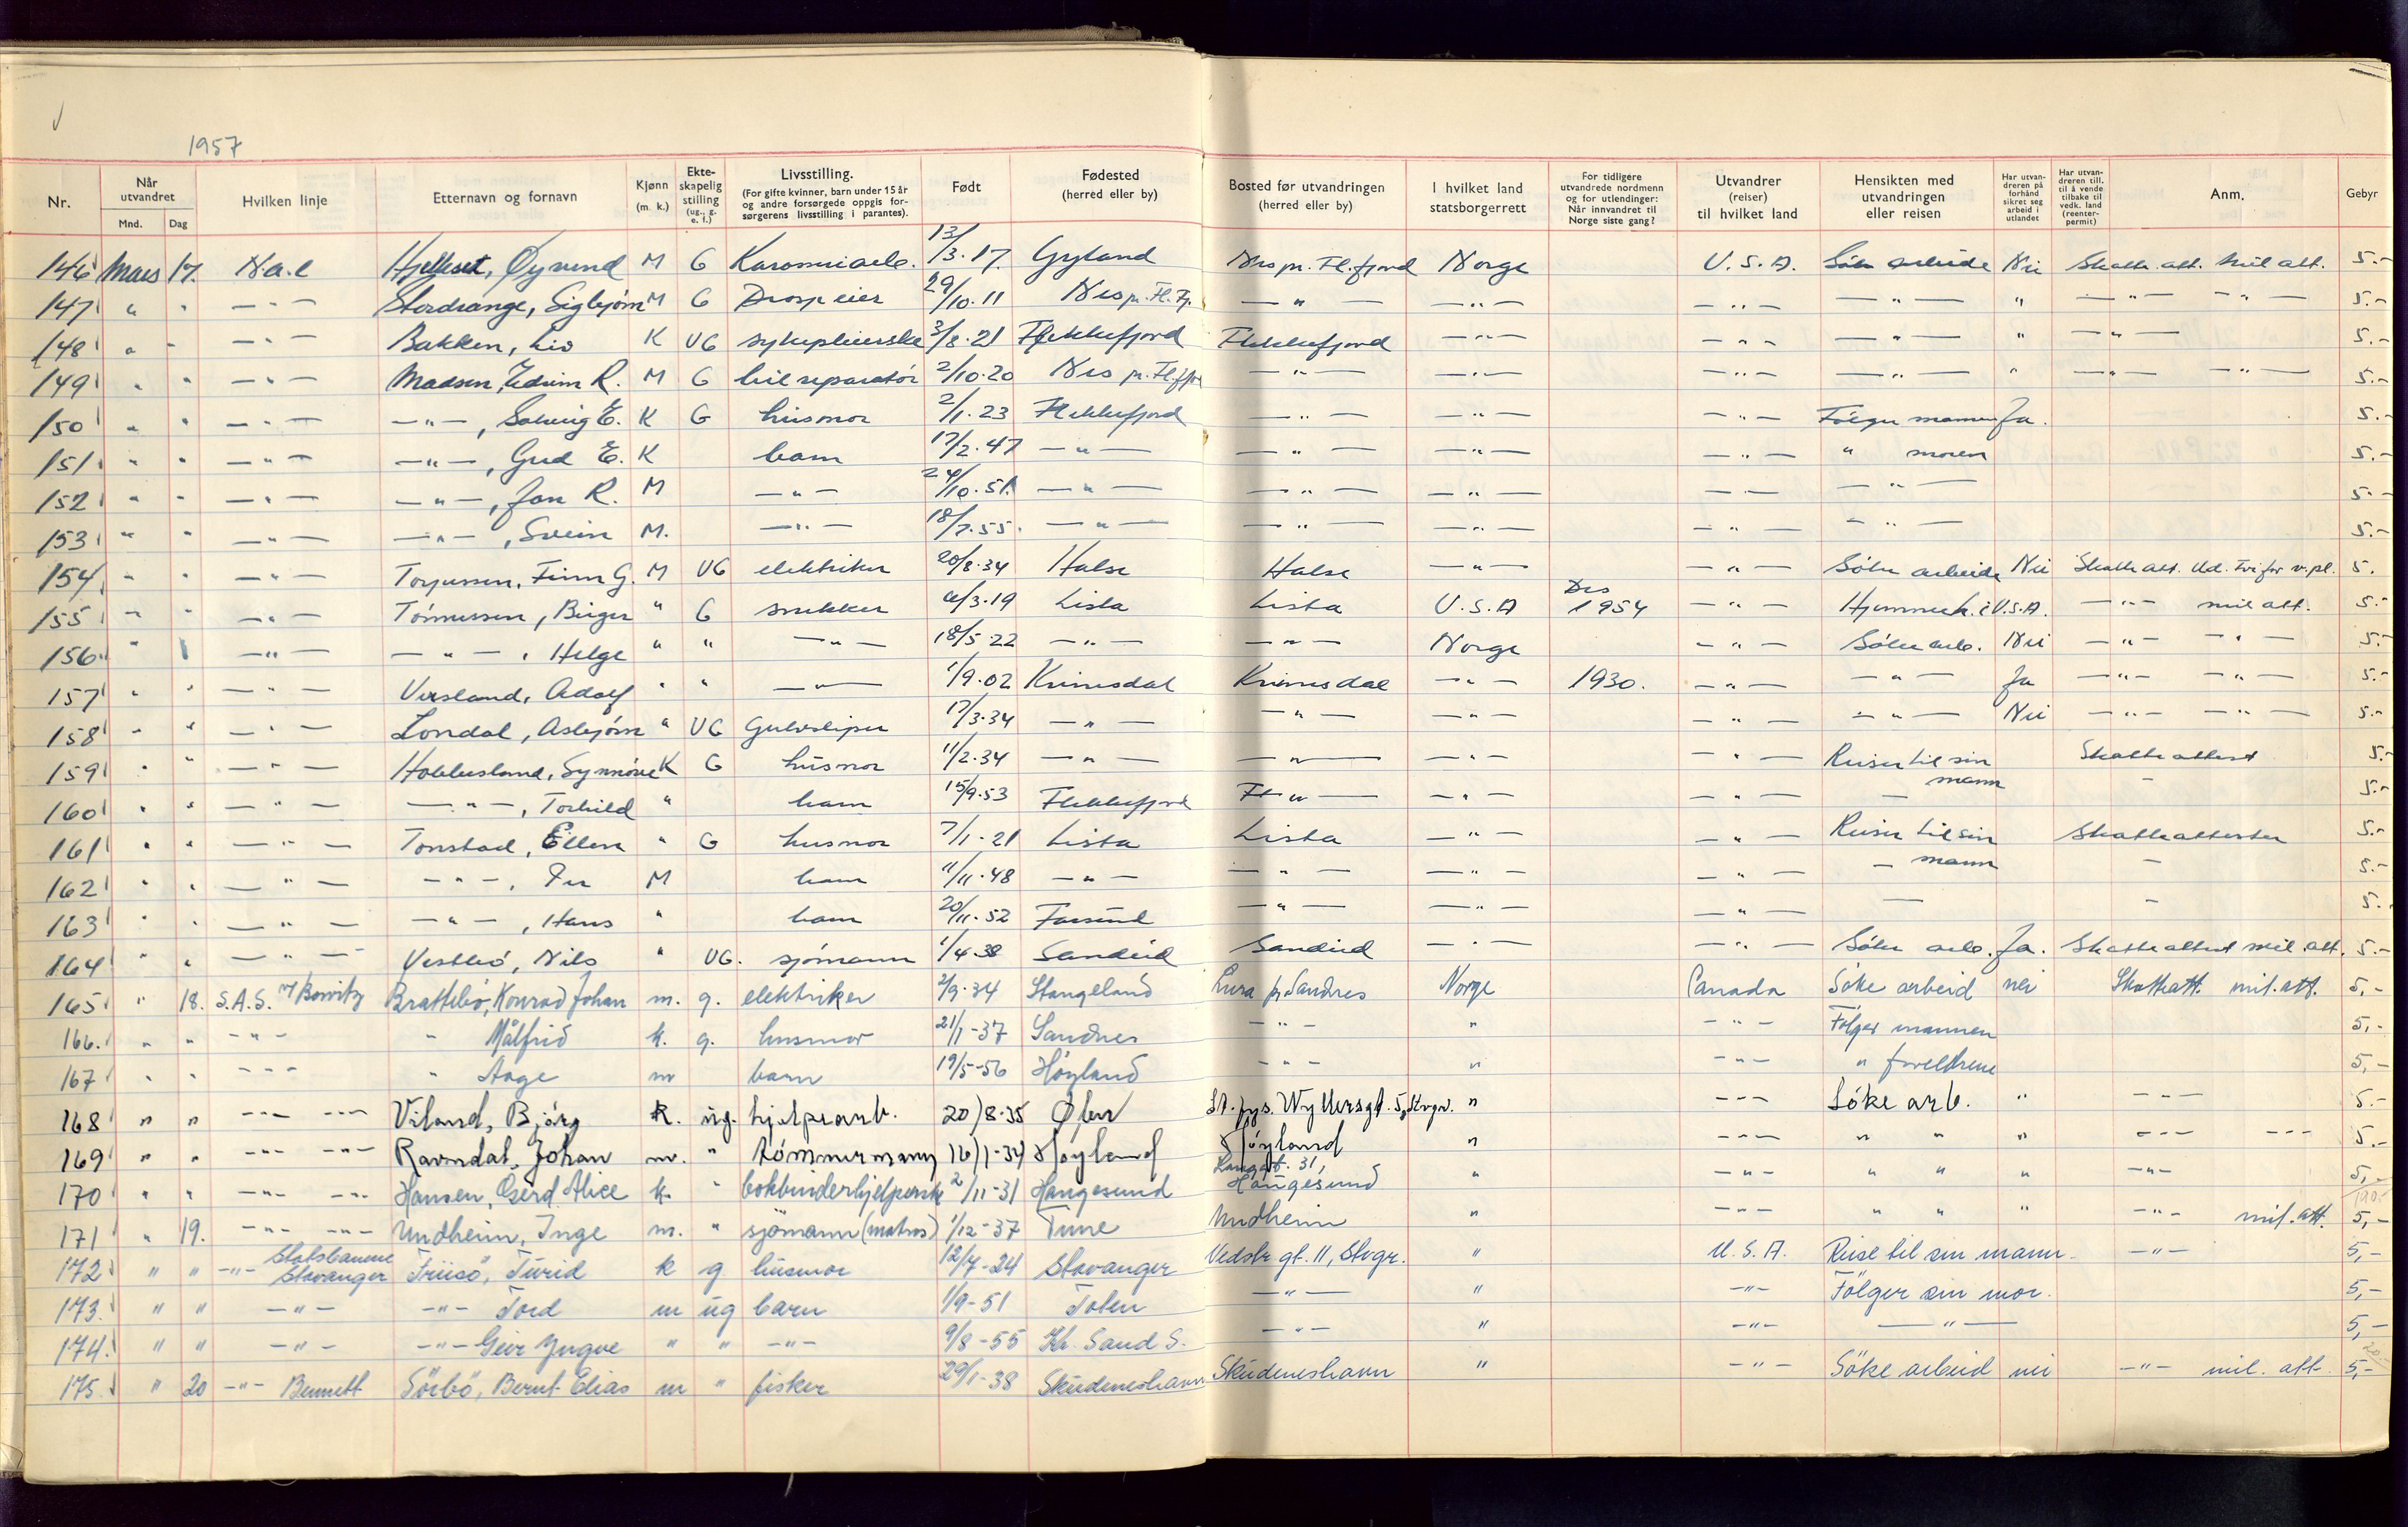 1957
Nr. Når utvandret Mnd. Dag Hvilken linje Etternavn og fornavn Kjønn (m. k.) Ekteskapelig stilling (ug., g. e. f.) Livsstilling. (For gifte kvinner, barn under 15 år og andre forsørgede oppgis forsørgerens livsstilling i parantes). Født Fødested (herred eller by) Bosted før utvandringen (herred eller by) I hvilket land statsborgerrett For tidligere utvandrede nordmenn og for utlendinger: Når innvandret til Norge siste gang? Utvandrer (reiser) til hvilket land Hensikten med utvandringen eller reisen Har utvandreren på forhånd sikret seg arbeid i utlandet Har utvandreren till. til å vende tilbake til vedk. land (reenterpermit) Anm. Gebyr
146 Mars 17. N.a.l Hjelleset, Øyvind M G 13/3.17. Gyland Nes pr. Fl.fjord Norge U.S.A. Søke arbeide Nei Skatte att. Mil att. 5.-
147 " " -"- Stordrange, Sigbjørn M G Drosjeeier 29/10.11 Nes pr. Fl.Fj. -"- -"- -"- -"- " -"- -"- 5.-
148 " - -"- Bakken, Liv K UG sykepleierske 3/8.21 Flekkefjord Flekkefjord -"- -"- -"- " -"- 5.-
149 " " -"- Madsen, Edvin R. M G bilreparatør 2/10.20 Nes pr. Fl.fj. -"- -"- -"- -"- " -"- -"- 5.-
150 " " -"- -"-, Solveig E. K G husmor 2/1.23 Flekkefjord -"- -"- -"- Følger mannen Ja. 5.-
151 " " -"- -"-, Grud E. K barn 17/2.47 -"- -"- -"- -"- " moren 5.-
152 " " -"- -"-, Jan R. M -"- 24/10.51. -"- -"- -"- -"- -"- 5.-
153 " " -"- -"-, Svein M. -"- 18/7.55. -"- -"- -"- -"- -"- 5.-
154 " " -"- Torjussen, Finn G. M UG elektriker 20/8.34 Halse Halse -"- -"- Søke arbeide Nei Skatte att. Ud. Fri for v.pl. 5.
155 " " -"- Tønnessen, Birger " G snekker 6/3.19 Lista Lista U.S.A Des 1954 -"- Hjemmeh. i U.S.A. -"- mil att. 5.-
156 " -"- -"-, Helge " " -"- 18/5.22 -"- -"- Norge -"- Søke arb. Nei -"- -"- 5.-
157 " " -"- Versland, Adolf " " -"- 1/9.02 Kvinesdal Kvinesdal -"- 1930. -"- -"- Ja -"- -"- 5.-
158 " " -"- Londal, Asbjørn " UG Gulvsliper 17/3.34 -"- -"- -"- -"- -"- Nei -"- -"- 5.-
159 " " -"- Hobbesland, Synnøve K G husmor 11/2.34 -"- -"- -"- -"- Reiser til sin mann Skatteattest 5.-
160 " " -"- -"-, Torhild " barn 15/9.53 Flekkefjord Fl -"- -"- -"- - - 5.-
161 " " -"- Tonstad, Ellen " G husmor 7/1.21 Lista Lista -"- -"- Reiser til sin mann Skatteattester 5.-
162 " " -"- -"-, Per M barn 11/11.48 -"- -"- -"- -"- - - 5.-
163 " " -"- -"-, Hans " barn 20/11.52 Farsund -"- -"- -"- - - 5.-
164 " " -"- Vestbø, Nils " UG. sjømann 1/4.38 Sandeid Sandeid -"- -"- Søke arb. Ja. Skatteattest mil.att. 5.-
165 " 18. S.A.S. Brattebø, Konrad Johan m. g. elektriker 2/9.34 Stangeland Lura pr. Sandnes Norge Canada Søke arbeid nei Skatteatt. mil.att. 5,-
166. " " -"- " Målfrid k. g. husmor 21/1-37 Sandnes -"- " -"- Følger mannen 5,-
167 " " -"- " Aage m barn 19/5-56 Høyland -"- " -"- " foreldrene 5,-
168 " " -"- -"- Viland, Bjørg K. ug. hjelpearb. 20/8.35 5, Stvgr. " -"- Søke arb. " -"- 5.-
169 " " -"- -"- Ravndal, Johan m. " tømmermann 16/1-34 Høyland Høyland " -"- " " " -"- -"- 5.-
170 " " -"- -"- Hansen, Gerd Alice k. " bokbinderhjelperske 2/11-31 Haugesund Langgt. 31, Haugesund " -"- " " " -"- 5,-
171 " 19. -"- -"- Undheim, Inge m. " sjømann (matros) 1/12-37 Time Undheim " -"- " " " -"- mil. att. 5,-
172 " " -"- Statsbanene Stavanger Friisø, Turid k g husmor 12/7-24 Stavanger Vedstr. gt. 11, Stvgr. " U.S.A. Reise til sin mann -"- 5,-
173. " " -"- -"- Tord m ug barn 1/9-51 Toten -"- " -"- Følger sin mor. 5,-
174. " " -"- -"- Geir Yngve " " -"- 9/8-55 Kr. Sand S. -"- " -"- -"- 5,-
175. " 20 -"- Bennett Sørbø, Bernt Elias m " fisker 29/1-38 Skudeneshavn Skudeneshavn " -"- Søke arbeid nei -"- mil. att. 5,-